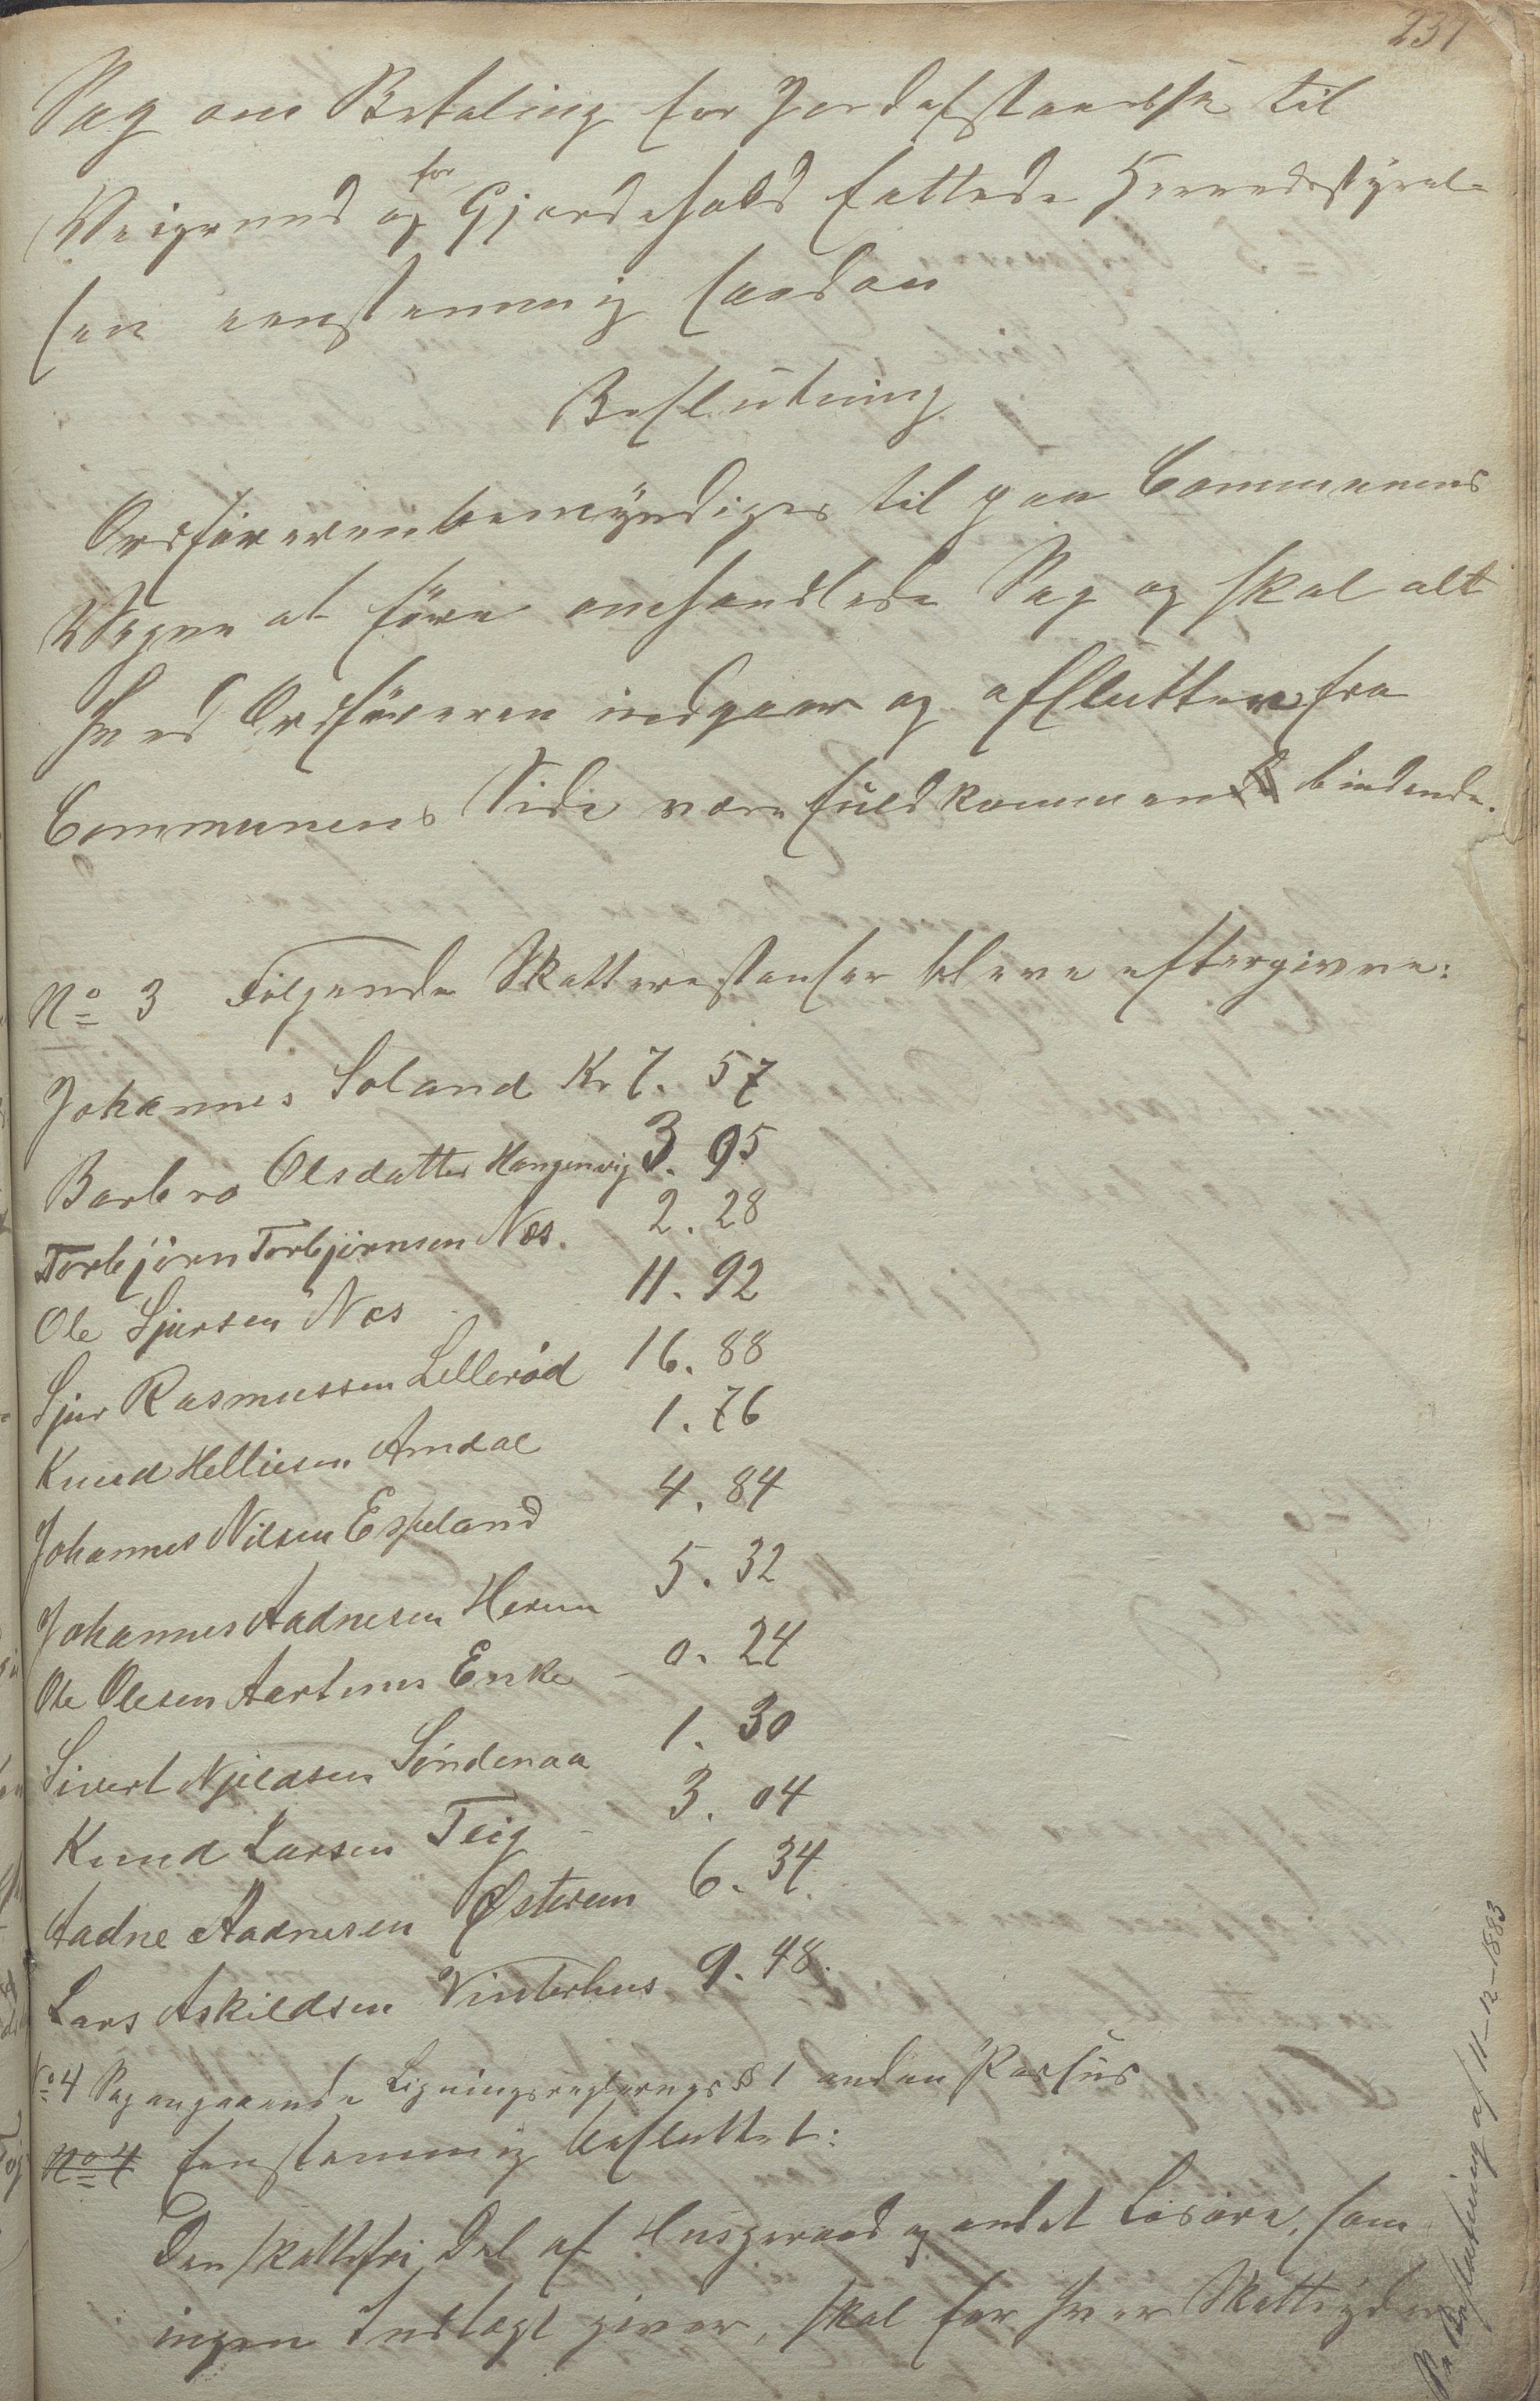 237
Sag om Betaling for Jordafstaaelse til
Veigrund og for Gjerdehold fattede Herredsstyrel-
sen eenstemmig saadan
Beslutning
Ordføreren bemyndiges til paa Communens
Vegne at føre omhandlede Sag og skal alt
hvad Ordføreren indgaar og afslutter fra
Communens Side være fuldkommen bindende.
No 3 Følgende Skatterestanser bleve eftergivne:
Johannes Soland Kr 7. 57
Barbro Olsdatter Hangenvig 3. 95
Torbjörn Torbjörnsen Næs. 2. 28
Ole Sjursen Næs - 11. 92
Sjur Rasmussen Lilleröd 16. 88
Knud Helliesen Amdal 1. 76
Johannes Nilsen Espeland 4. 84
Johannes Aadnesen Herum 5. 32
Ole Olesen Aartunes Enke - 0. 24
Sivert Njeldsen Söndenaa 1. 30
Knud Larsen Teig - 3. 04
Aadne Aadnesen Østerun 6. 34.
Lars Askildsen Vinterhus 9. 48.
No 4 Sag angaaende Ligningsreglernes § 1 anden Passus
No 4 Eenstemmig besluttet:
Den skattefri Del af Husgeraad og andet Løsøre, som
ingen Indtægt giver, skal for hver Skatteyder
Se Beslutning af 11-12-1883